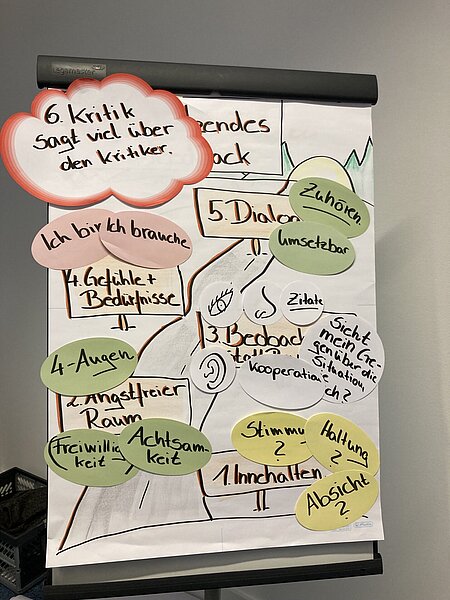 legamaster
6. Kritik
sagt viel über
den Kritiker.
5. Dialog
Zuhören.
Umsetzbar
Ich bin
Ich brauche
4. Gefühle +
Bedürfnisse
Zitate
3. Beobach
Sieht
mein Ge-
genüber die
Situation
Kooperation
ch?
4-Augen
2. Angstfreier
Raum
(Freiwillig
keit)
Achtsam-
keit
Stimmu
?
Haltung
?
1. Innehalten
Absicht
?